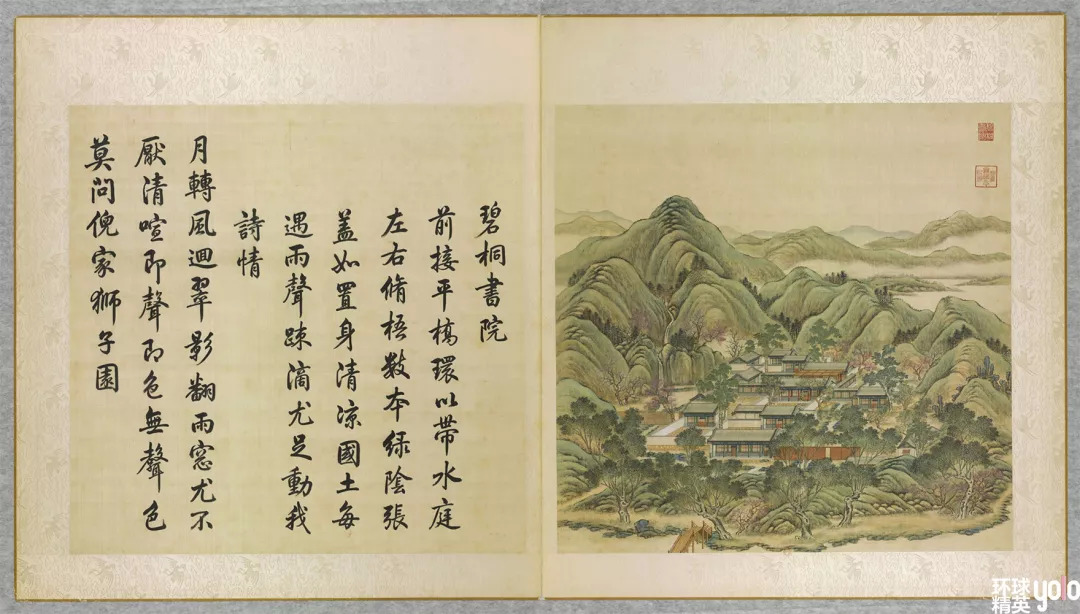 碧桐書院
前接平槗環以帶水庭
左右脩梧數本緑陰張
蓋如置身清涼國土每
遇雨聲踈滴尤足動我
詩情
月轉風迴翠影翻雨窓尤不
厭清喧即聲即色無聲色
莫問倪家獅子園
环球
精英 yolo